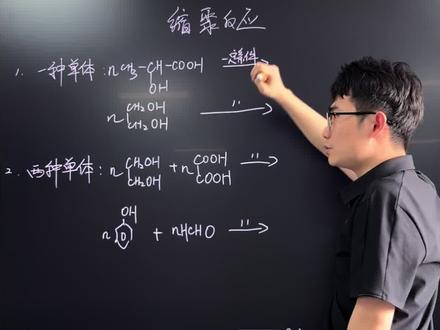 缩聚反应
1. 一种单体: nCH3-CH-COOH 一定条件
OH
n CH2OH CH2OH 〃
2. 两种单体: n CH2OH CH2OH + n COOH COOH 〃
OH
n + nHCHO 〃